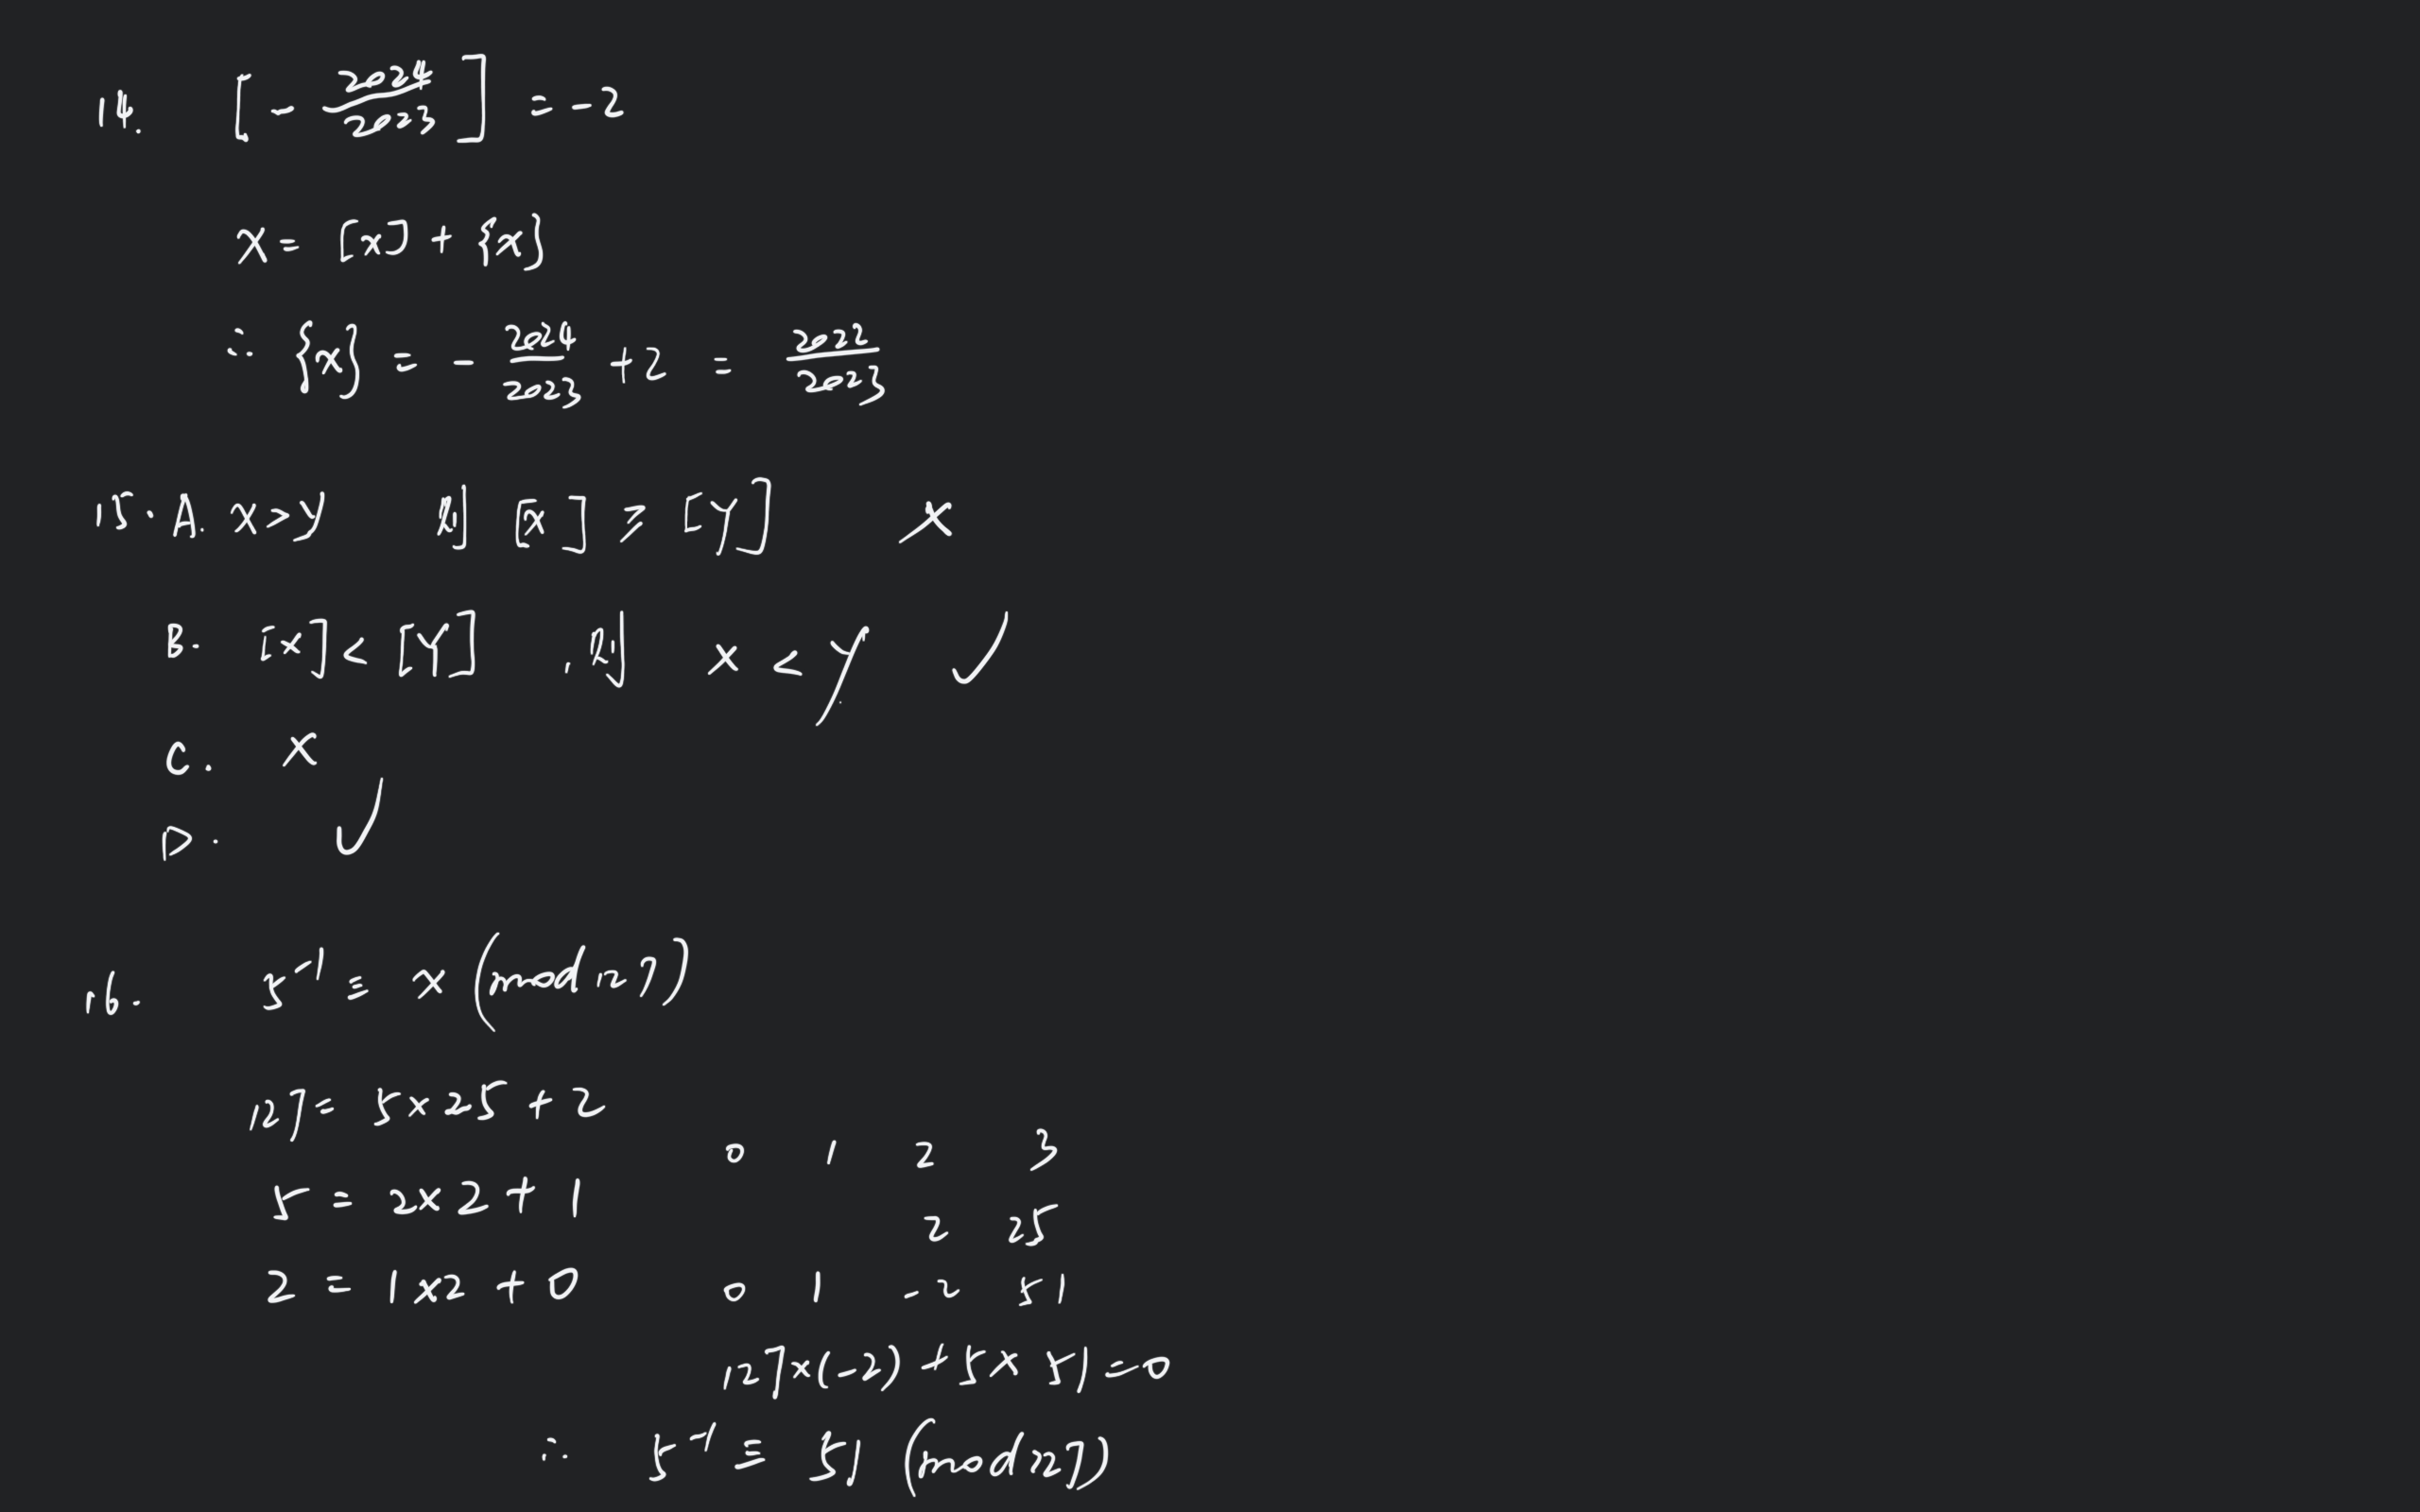 14. [-2024/2023] = -2
x = [x] + {x}
∴ {x} = -2024/2023 + 2 = 2022/2023
15. A. x>y 则 [x] ≥ [y] ×
B. [x] < [y], 则 x < y ✓
C. ×
D. ✓
16. 5⁻¹ ≡ x (mod 127)
127 = 5×25+2
5 = 2×2+1
2 = 1×2+0
0 1 2 3
2 25
0 1 -2 51
127×(-2)+5×51=0
∴ 5⁻¹ ≡ 51 (mod 127)